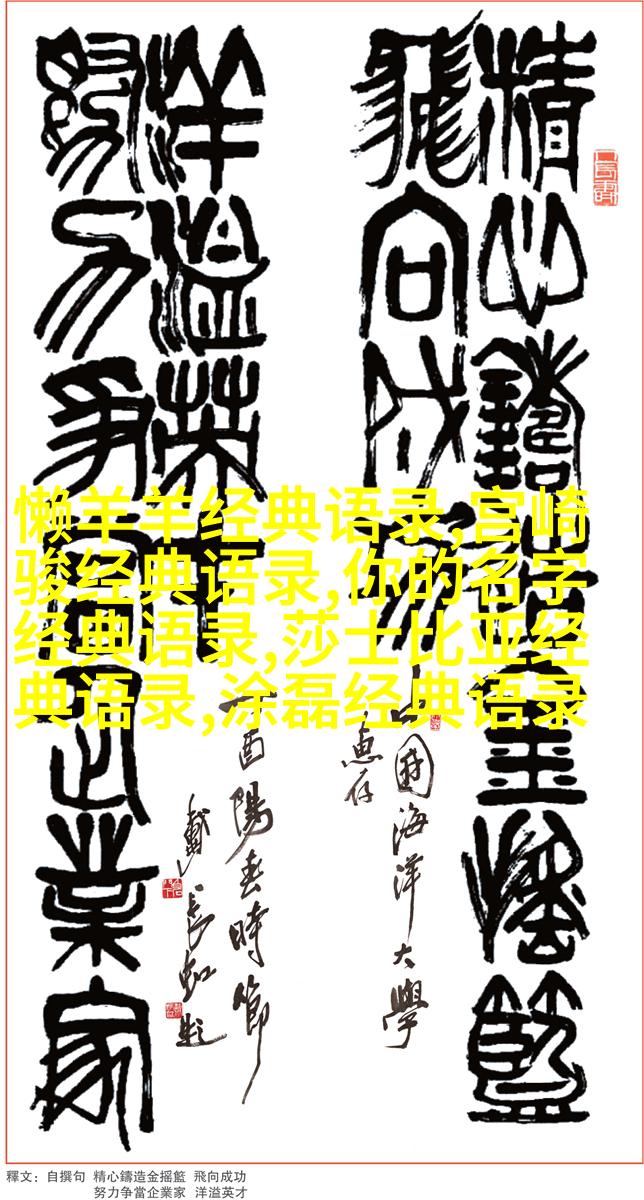 精心鑄造金搖籃
飛向成功
中國海洋大學
惠存
努力爭當企業家
洋溢英才
丁酉陽春時節
戴長虹題
懒羊羊经典语录,宫崎
骏经典语录,你的名字
经典语录,莎士比亚经
典语录,涂磊经典语录
釋文：自撰句 精心鑄造金摇籃 飛向成功
努力争當企業家 洋溢英才